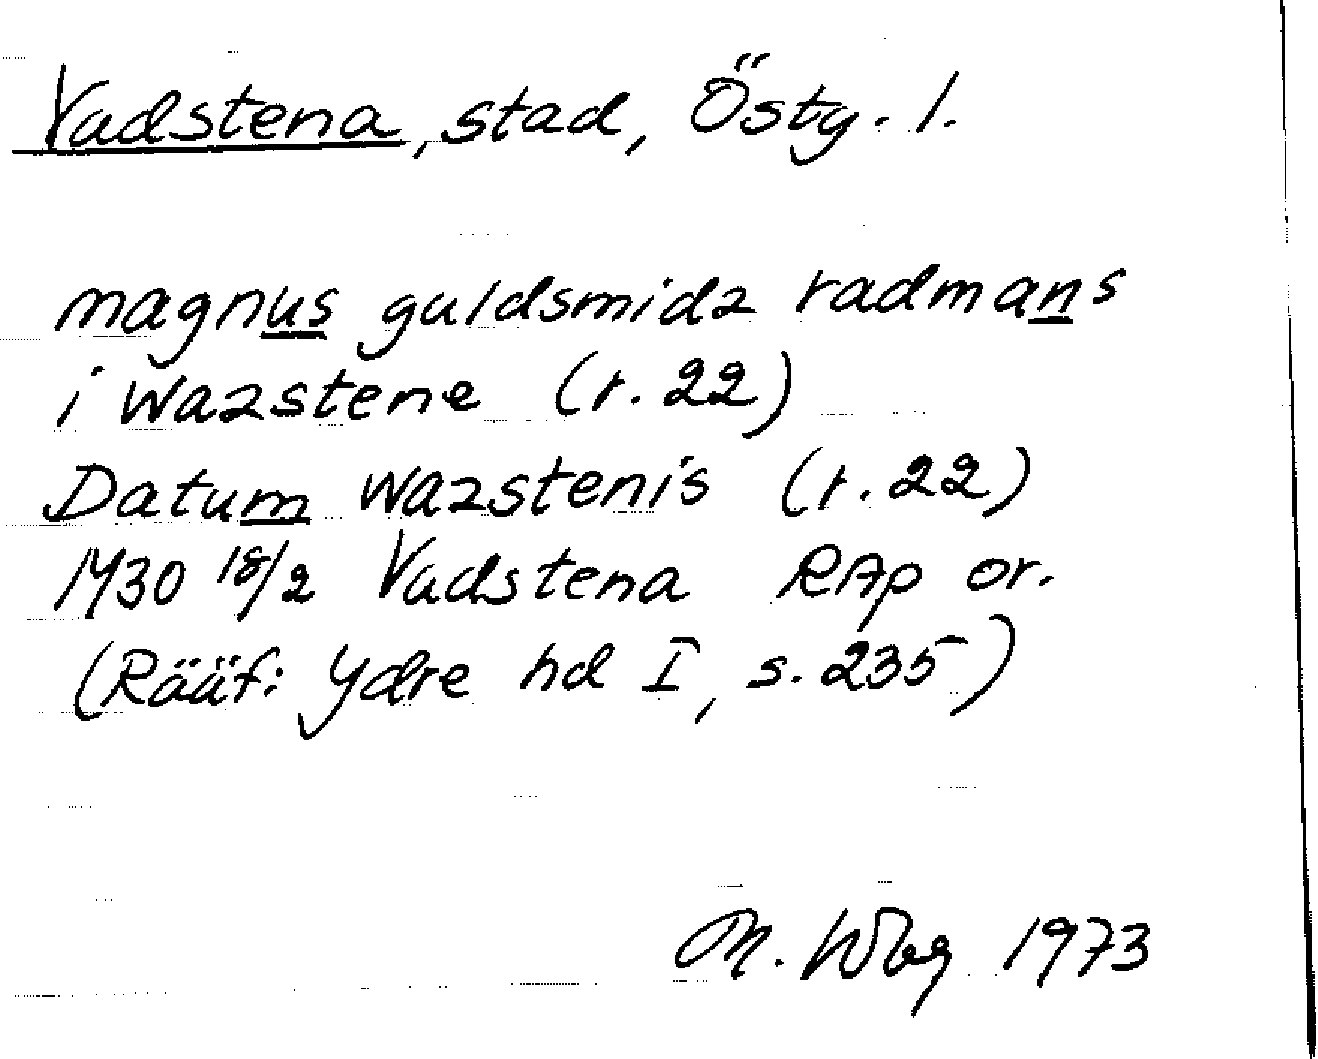 Vadstena, stad, Östg. l.
magnus guldsmidz radmans
i wazstene (r. 22)
Datum wazstenis (r. 22)
1430 18/2 Vadstena RAp or.
(Rääf: Ydre hd I, s. 235)
M. Wbg 1973